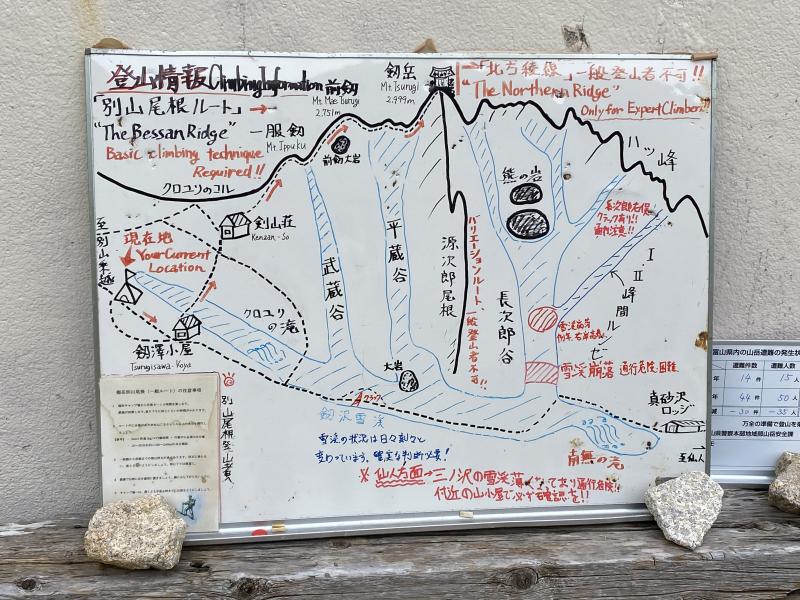 登山情報 Climbing Information
「別山尾根ルート」→
"The Bessan Ridge"
Basic climbing technique
Required!!
一服剱
Mt. Ippuku
前剱
Mt. Mae tsurugi
2,751m
剱岳
Mt. Tsurugi
2,999m
「北方稜線」一般登山者不可!!
"The Northern Ridge"
Only for Expert Climber!!
クロユリのコル
前剱大岩
熊の岩
八ッ峰
長次郎右俣
クラック有り!!
通行注意!!
至別山乗越
現在地
Your Current
Location
剣山荘
Kenzan-So
武蔵谷
平蔵谷
源次郎尾根
バリエーションルート、一般登山者不可!!
長次郎谷
Ⅰ Ⅱ 峰間ルンゼ
クロユリの滝
剱澤小屋
Tsurugisawa-Koya
大岩
クラック
雪渓崩落 通行危険・困難
真砂沢
ロッジ
至仙人
南無の滝
剱沢雪渓
雪渓の状況は日々刻々と
変わっています。確実な判断必要!
※仙人方面→三ノ沢の雪渓薄くなっており通行危険!!
付近の山小屋で必ず確認を!!
別山尾根登山者
富山県内の山岳遭難の発生状
遭難件数 遭難人
年 14件 15人
年 44件 50人
減 -30件 -35人
万全の準備で登山を